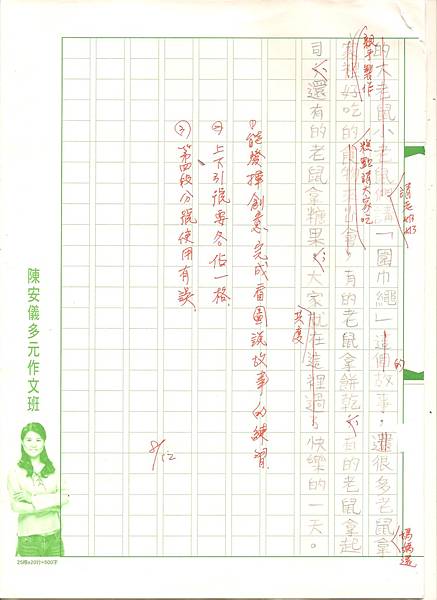 的大老鼠小老鼠講「圍巾繩」這個故事,還很多老鼠拿
請老奶奶
的
媽媽還
好吃的食物,有的老鼠拿餅乾,有的老鼠拿起
親手製作
糕點請大家吃
司,還有的老鼠拿糖果,大家就在這裡過快樂的一天。
共度
①能發揮創意完成看圖說故事的練習.
②上下引號要各佔一格.
③第四段分號使用有誤.
8/12
陳安儀多元作文班
25格x20行=500字